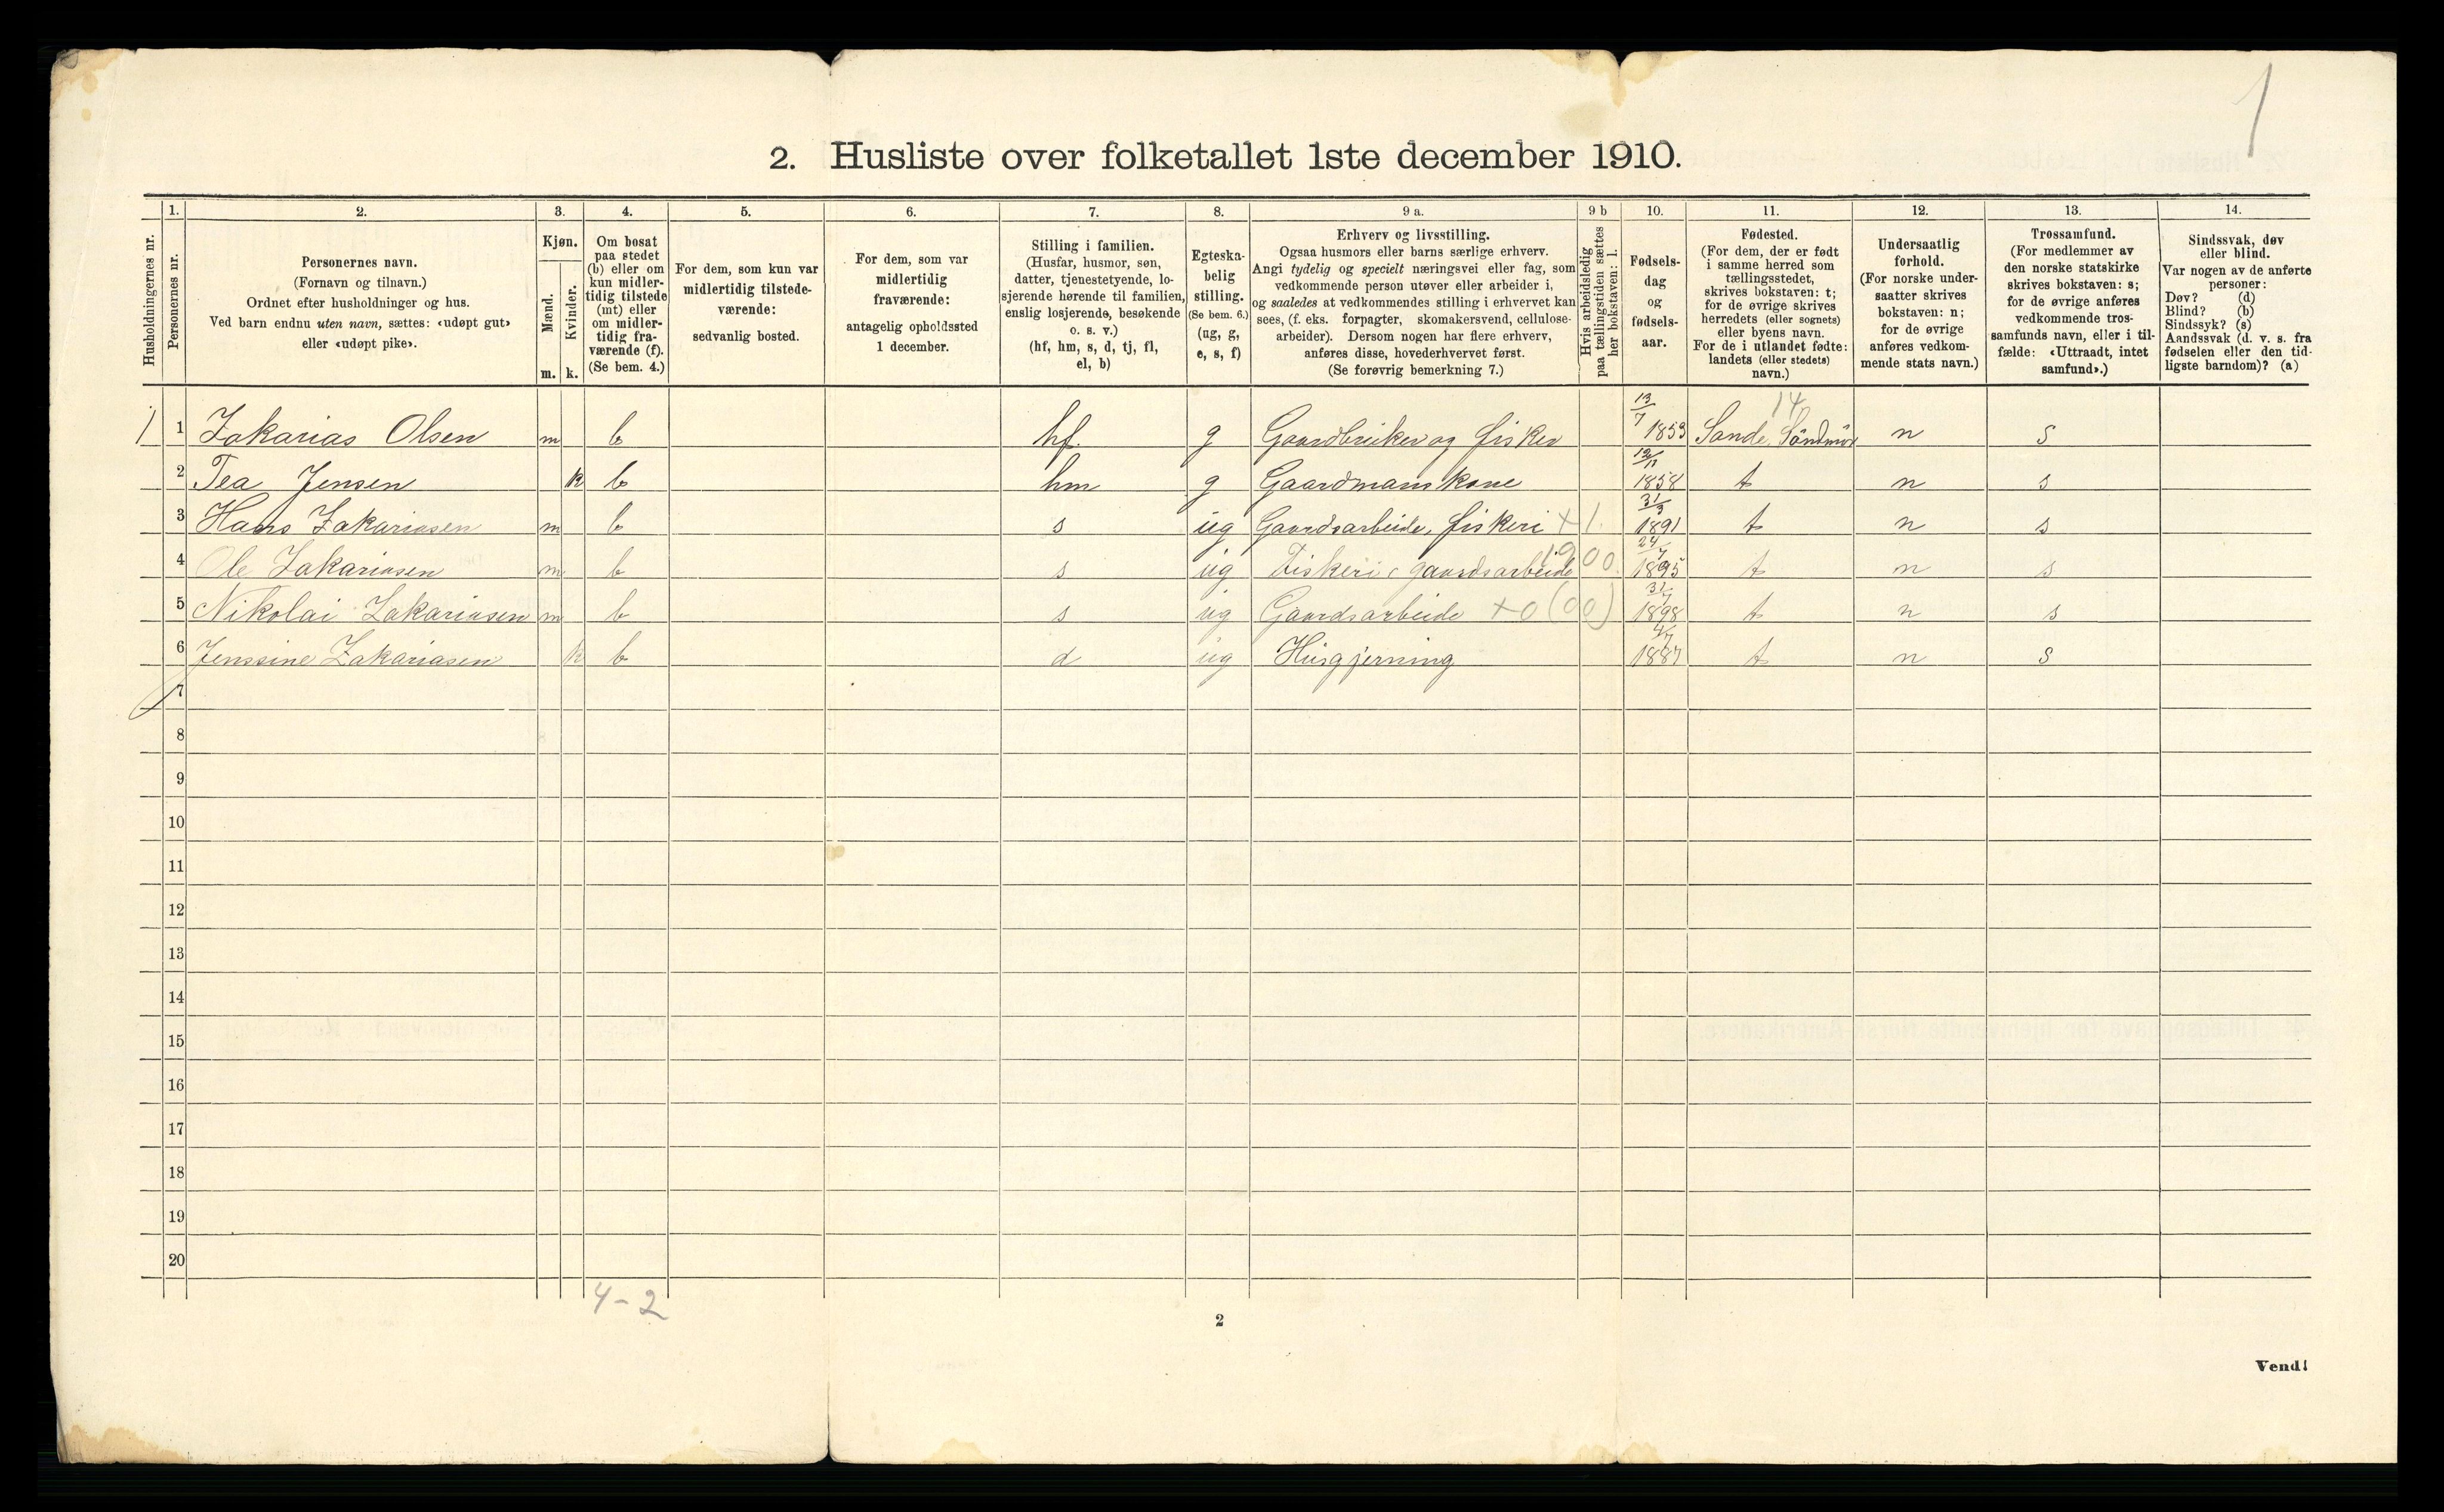 1
2. Husliste over folketallet 1ste december 1910.
Husholdningernes nr.
1. 2. 3. 4. 5. 6. 7. 8. 9 a. 9 b 10. 11. 12. 13. 14.
Personernes nr.
Personernes navn.
(Fornavn og tilnavn.)
Ordnet efter husholdninger og hus.
Ved barn endnu uten navn, sættes: «udøpt gut»
eller «udøpt pike».
Kjøn.
Mænd.
Kvinder.
m. k.
Om bosat
paa stedet
(b) eller om
kun midler-
tidig tilstede
(mt) eller
om midler-
tidig fra-
værende (f).
(Se bem. 4.)
For dem, som kun var
midlertidig tilstede-
værende:
sedvanlig bosted.
For dem, som var
midlertidig
fraværende:
antagelig opholdssted
1 december.
Stilling i familien.
(Husfar, husmor, søn,
datter, tjenestetyende, lo-
sjerende hørende til familien,
enslig losjerende, besøkende
o. s. v.)
(hf, hm, s, d, tj, fl,
el, b)
Egteska-
belig
stilling.
(Se bem. 6.)
(ug, g,
e, s, f)
Erhverv og livsstilling.
Ogsaa husmors eller barns særlige erhverv.
Angi tydelig og specielt næringsvei eller fag, som
vedkommende person utøver eller arbeider i,
og saaledes at vedkommendes stilling i erhvervet kan
sees, (f. eks. forpagter, skomakersvend, cellulose-
arbeider). Dersom nogen har flere erhverv,
anføres disse, hovederhvervet først.
(Se forøvrig bemerkning 7.)
Hvis arbeidsledig
paa tællingstiden sættes
her bokstaven: l.
Fødsels-
dag
og
fødsels-
aar.
Fødested.
(For dem, der er født
i samme herred som
tællingsstedet,
skrives bokstaven: t;
for de øvrige skrives
herredets (eller sognets)
eller byens navn.
For de i utlandet fødte:
landets (eller stedets)
navn.)
Undersaatlig
forhold.
(For norske under-
saatter skrives
bokstaven: n;
for de øvrige
anføres vedkom-
mende stats navn.)
Trossamfund.
(For medlemmer av
den norske statskirke
skrives bokstaven: s;
for de øvrige anføres
vedkommende tros-
samfunds navn, eller i til-
fælde: «Uttraadt, intet
samfund».)
Sindssvak, døv
eller blind.
Var nogen av de anførte
personer:
Døv? (d)
Blind? (b)
Sindssyk? (s)
Aandssvak (d. v. s. fra
fødselen eller den tid-
ligste barndom)? (a)
1 1 Zakarias Olsen m b hf. g Gaardbruker og fisker 13/7 1853 Sande, Söndmör 14 n s
2 Tea Jensen k b hm g Gaardmanskone 1858 t n s
3 Hans Zakariasen m b s ug Gaardsarbeide, fiskeri + 1. 31/3 1891 t n s
4 Ole Zakariasen m b s ug Fiskeri, gaardsarbeide 1900. 24/7 1895 t n s
5 Nikolai Zakariasen m b s ug Gaardsarbeide +0 (00) 31/7 1898 t n s
6 Jenssine Zakariasen k b d ug Husgjerning 4/7 1887 t n s
7
8
9
10
11
12
13
14
15
16
17
18
19
20
4 - 2
2
Vend!